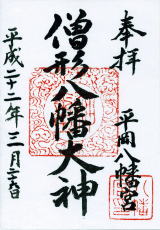 奉拝
平岡八幡宮
僧形八幡大神
平成二十二年三月二十六日